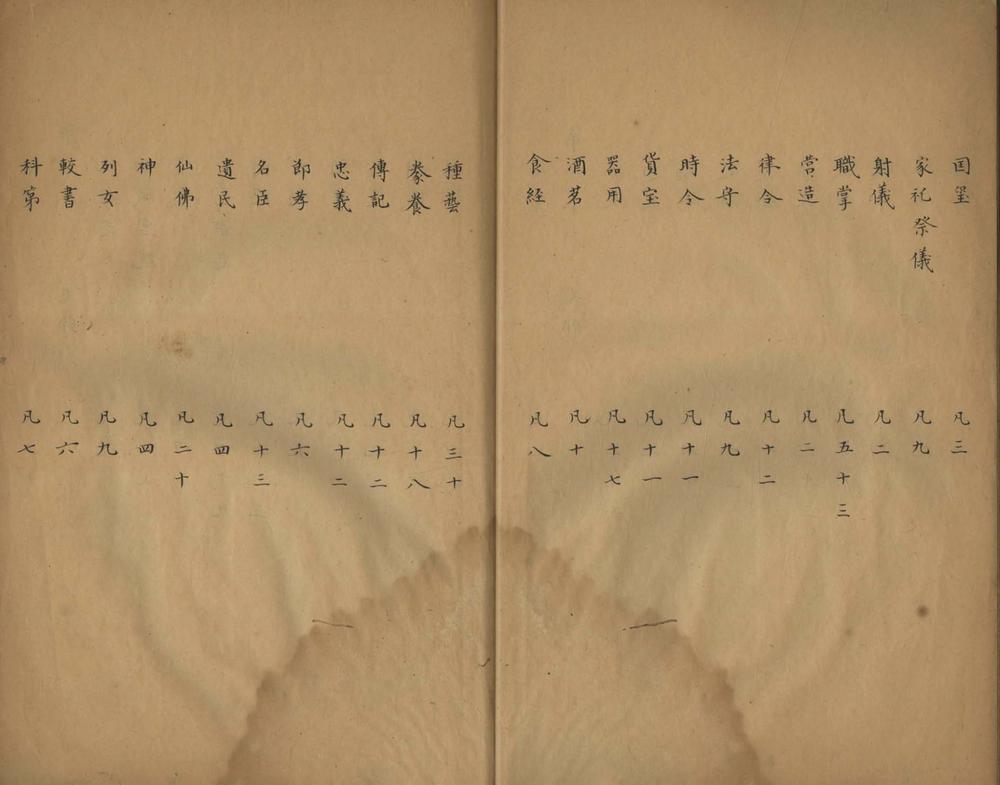 国璽 凡三
家礼祭儀 凡九
射儀 凡二
職掌 凡五十三
营造 凡二
律令 凡十二
法守 凡九
時令 凡十一
貨宝 凡十一
器用 凡十七
酒茗 凡十
食経 凡八
種藝 凡三十
豢養 凡十八
傳記 凡十二
忠義 凡十二
郎孝 凡六
名臣 凡十三
遺民 凡四
仙佛 凡二十
神 凡四
列女 凡九
較書 凡六
科第 凡七